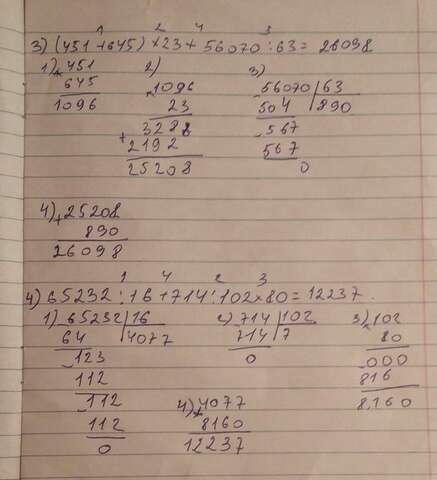 1 2 4 3
3) (451+645)×23+56070:63=26098
1) 451 2) 3)
+645 ×1096 56070|63
1096 23 504 890
3288 567
+2192 567
25208 0
4) +25208
890
26098
1 4 2 3
4) 65232:16+714:102×80=12237.
1) 65232|16 2) 714|102 3) ×102
64 4077 714 7 80
123 0 000
112 816
112 4) +4077 8160
112 8160
0 12237